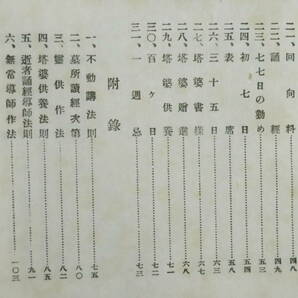 二一、回向料……四八
二二、誦經……四九
二三、七七日の勤め……五三
二四、初七日……五四
二五、表席……五八
二六、三十五日……六三
二七、塔婆書樣……六七
二八、塔婆贈遣……六八
二九、塔婆供養……七一
三〇、百ヶ日……七二
三一、一週忌……七三
附錄
一、不動講法則……七五
二、墓所讀經次第……八〇
三、靈供作法……八二
四、塔婆供養法則……八五
五、逝者誦經導師法則……九一
六、無常導師作法……一〇三